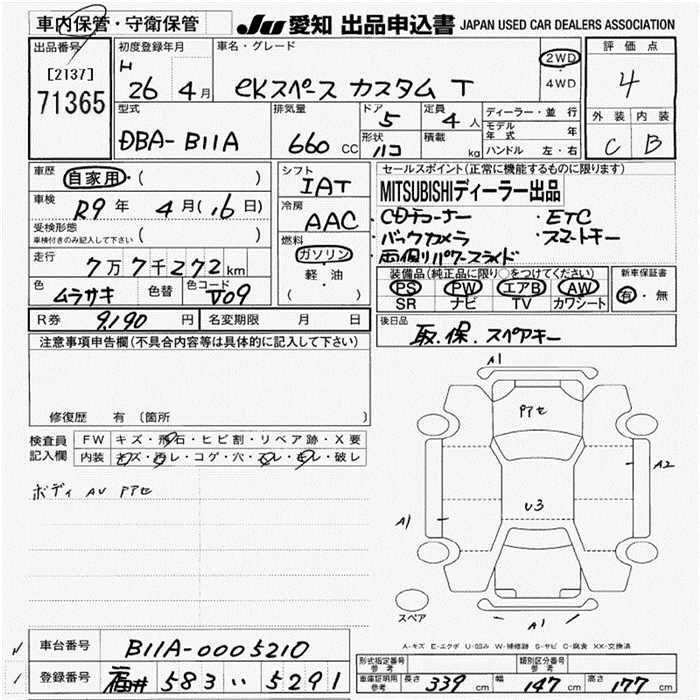 車内保管・守衛保管
JU 愛知 出品申込書 JAPAN USED CAR DEALERS ASSOCIATION
出品番号
[2137]
71365
初度登録年月
H
26 4月
車名・グレード
eKスペース カスタム T
2WD
4WD
評価点
4
外装 内装
C B
型式
DBA-B11A
排気量
660 CC
ドア
5
定員
4人
形状
ハコ
積載
kg
ディーラー・並行
モデル年式 年
ハンドル 左・右
車歴
自家用・( )
車検
R9年 4月( 16日)
受検形態
車検付きのみ記入して下さい ( )
走行
7万7千272km
色
ムラサキ
色替
色コード
V09
シフト
IAT
冷房
AAC
燃料
ガソリン
・
軽・油
( )
セールスポイント(正常に機能するものに限ります)
MITSUBISHIディーラー出品
・CDチューナー ・ETC
・バックカメラ ・スマートキー
・両側パワースライド
装備品(純正品に限り○をつけてください)
PS PW エアB AW
SR ナビ TV カワシート
新車保証書
有・無
R券 9,190円
名変期限 月 日
後日品
取.保.スペアキー
注意事項申告欄(不具合内容等は具体的に記入して下さい)
修復歴 有〔箇所
検査員
記入欄
FW キズ・飛石・ヒビ割・リペア跡・X要
内装 キズ・汚レ・コゲ・穴・スレ・キレ・破レ
ボディ AU Pアセ
A1
Pアセ
A2
U3
A1
スペア
A1
A-キズ E-エクボ U-凹み W-補修跡 S-サビ C-腐食 XX-交換済
車台番号 B11A-0005210
登録番号 福井 583 い 5291
形式指定番号
参考
類別区分番号
参考
車庫証明用
参考
長さ 339cm 幅 147cm 高さ 177cm